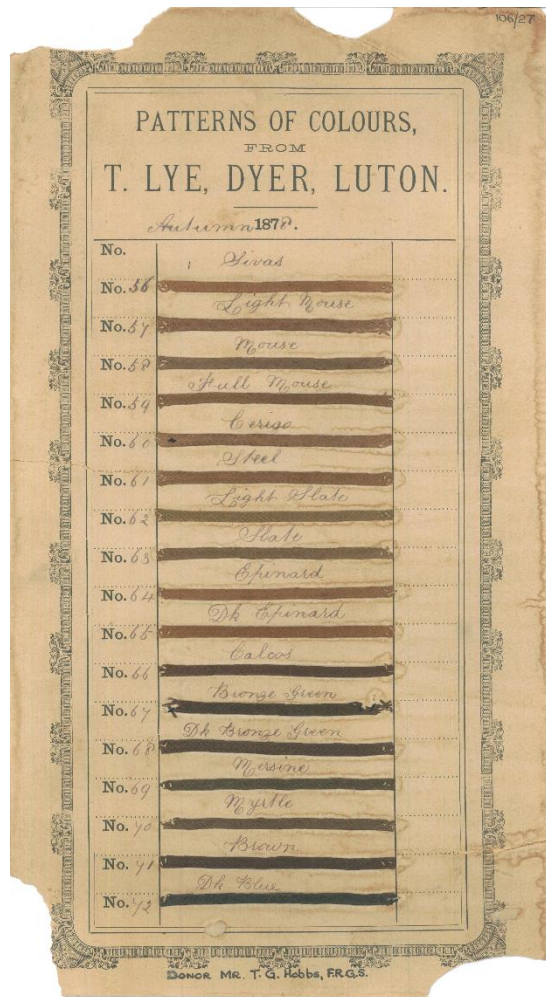 106/27
PATTERNS OF COLOURS,
FROM
T. LYE, DYER, LUTON.
Autumn 1878.
No.
Sivas
No. 56
Light Mouse
No. 57
Mouse
No. 58
Full Mouse
No. 59
Cerigo
No. 60
Steel
No. 61
Light Slate
No. 62
Slate
No. 63
Epinard
No. 64
Dk Epinard
No. 65
No. 66
Bronze Green
No. 67
Dk Bronze Green
No. 68
Mersine
No. 69
Myrtle
No. 70
Brown
No. 71
Dk Blue
No. 72
DONOR MR. T. G. Hobbs, F.R.G.S.